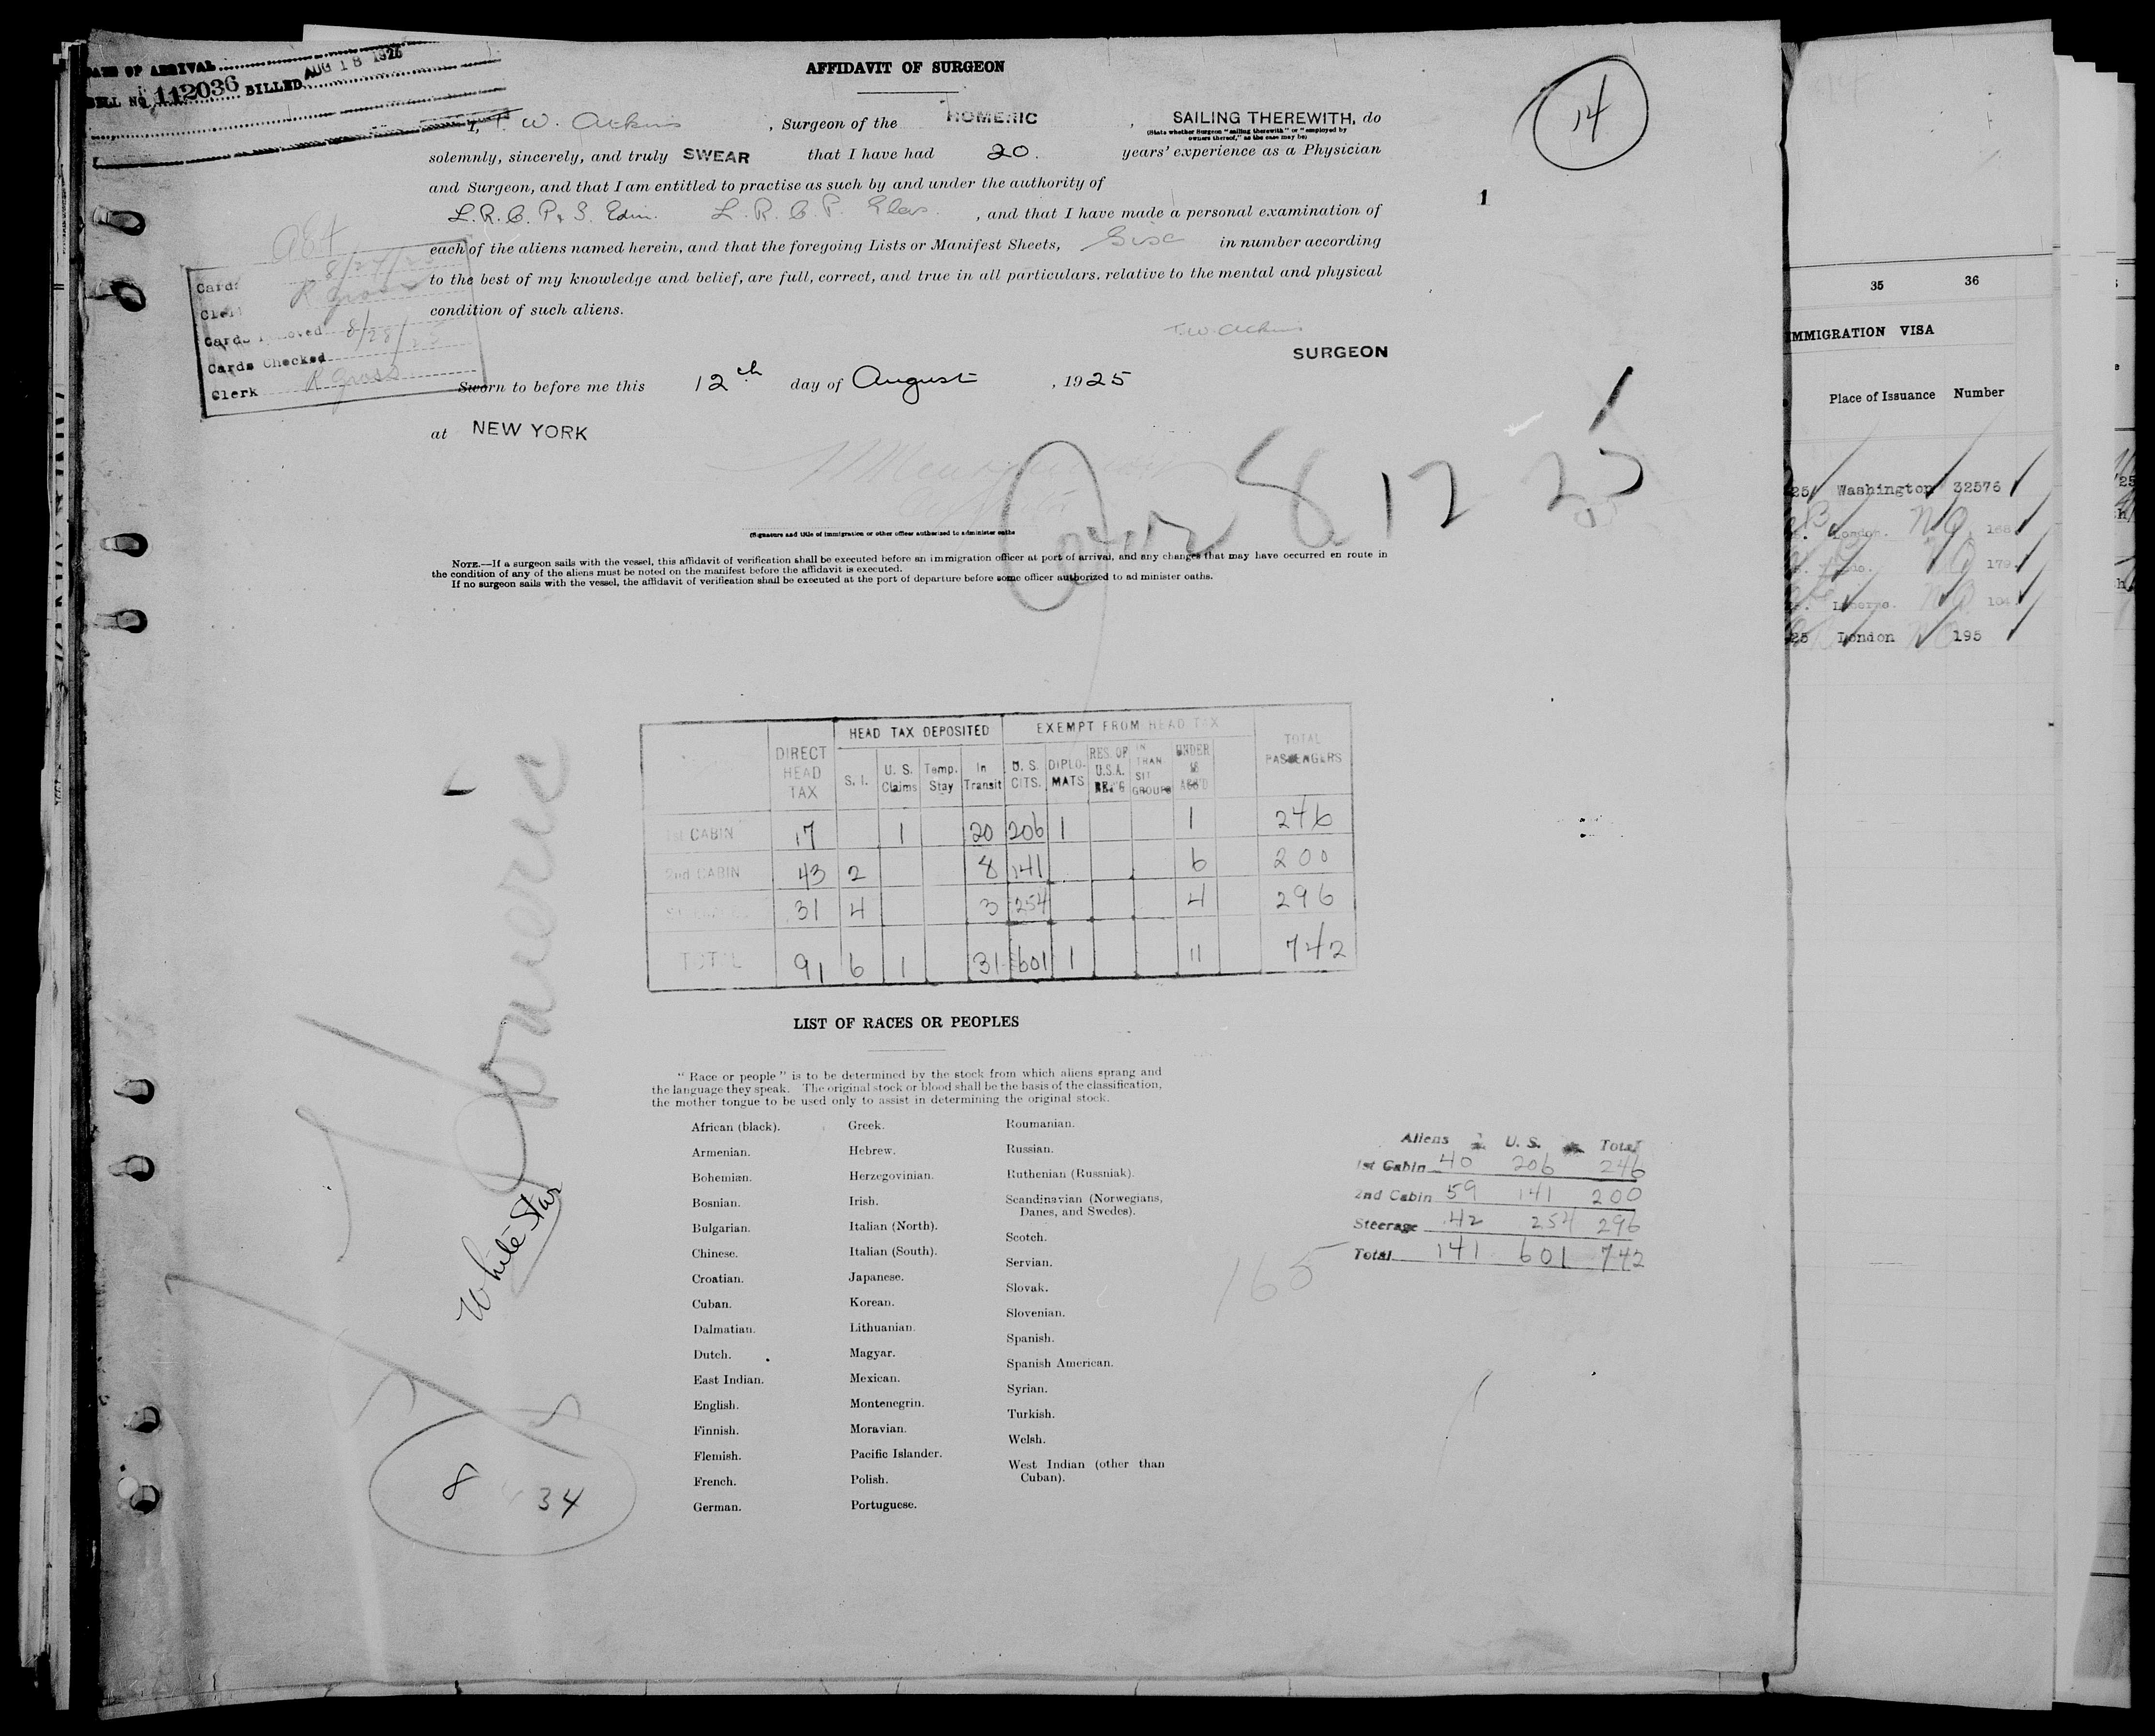 DATE OF ARRIVAL
BILL NO 112036 BILLED AUG 18 1925
14
AFFIDAVIT OF SURGEON
I, T. W. Atkins, Surgeon of the HOMERIC, SAILING THEREWITH, do
(State whether Surgeon "sailing therewith" or "employed by
owners thereof," as the case may be)
solemnly, sincerely, and truly SWEAR that I have had 20. years' experience as a Physician
and Surgeon, and that I am entitled to practise as such by and under the authority of
L.R.C.P. & S. Edin. L.R.C.P. Glas., and that I have made a personal examination of
1
each of the aliens named herein, and that the foregoing Lists or Manifest Sheets, in number according
to the best of my knowledge and belief, are full, correct, and true in all particulars, relative to the mental and physical
condition of such aliens.
T.W. Atkins
SURGEON
Cards 8/27/25
Clerk R Gross
Cards 8/28/25
Cards Checked
Clerk R Gross
Sworn to before me this 12th day of August, 1925
at NEW YORK
8 12 25
(Signature and title of immigration or other officer authorized to administer oaths
NOTE.—If a surgeon sails with the vessel, this affidavit of verification shall be executed before an immigration officer at port of arrival, and any changes that may have occurred en route in
the condition of any of the aliens must be noted on the manifest before the affidavit is executed.
If no surgeon sails with the vessel, the affidavit of verification shall be executed at the port of departure before some officer authorized to ad minister oaths.
DIRECT HEAD TAX HEAD TAX DEPOSITED EXEMPT FROM HEAD TAX TOTAL PASSENGERS
S. I. U. S. Claims Temp. Stay In Transit U. S. CITS. DIPLO-MATS RES. OF U.S.A. RE.'G IN TRAN SIT GROUPS UNDER 16 ACC'D
1st CABIN 17 1 20 206 1 1 246
2nd CABIN 43 2 8 141 6 200
31 4 3 254 4 296
TOTAL 91 6 1 31 601 1 11 742
Homeric
White Star
8 34
LIST OF RACES OR PEOPLES
"Race or people" is to be determined by the stock from which aliens sprang and
the language they speak. The original stock or blood shall be the basis of the classification,
the mother tongue to be used only to assist in determining the original stock.
African (black).
Armenian.
Bohemian.
Bosnian.
Bulgarian.
Chinese.
Croatian.
Cuban.
Dalmatian.
Dutch.
East Indian.
English.
Finnish.
Flemish.
French.
German.
Greek.
Hebrew.
Herzegovinian.
Irish.
Italian (North).
Italian (South).
Japanese.
Korean.
Lithuanian.
Magyar.
Mexican.
Montenegrin.
Moravian.
Pacific Islander.
Polish.
Portuguese.
Roumanian.
Russian.
Ruthenian (Russniak).
Scandinavian (Norwegians,
Danes, and Swedes).
Scotch.
Servian.
Slovak.
Slovenian.
Spanish.
Spanish American.
Syrian.
Turkish.
Welsh.
West Indian (other than
Cuban).
165
Aliens U. S. Total
1st Cabin 40 206 246
2nd Cabin 59 141 200
Steerage 42 254 296
Total 141 601 742
35 36
IMMIGRATION VISA
Place of Issuance Number
25 Washington 32576
London. N.Q. 168
do. N.Q. 179.
N.Q. 104
25 London N.Q. 195